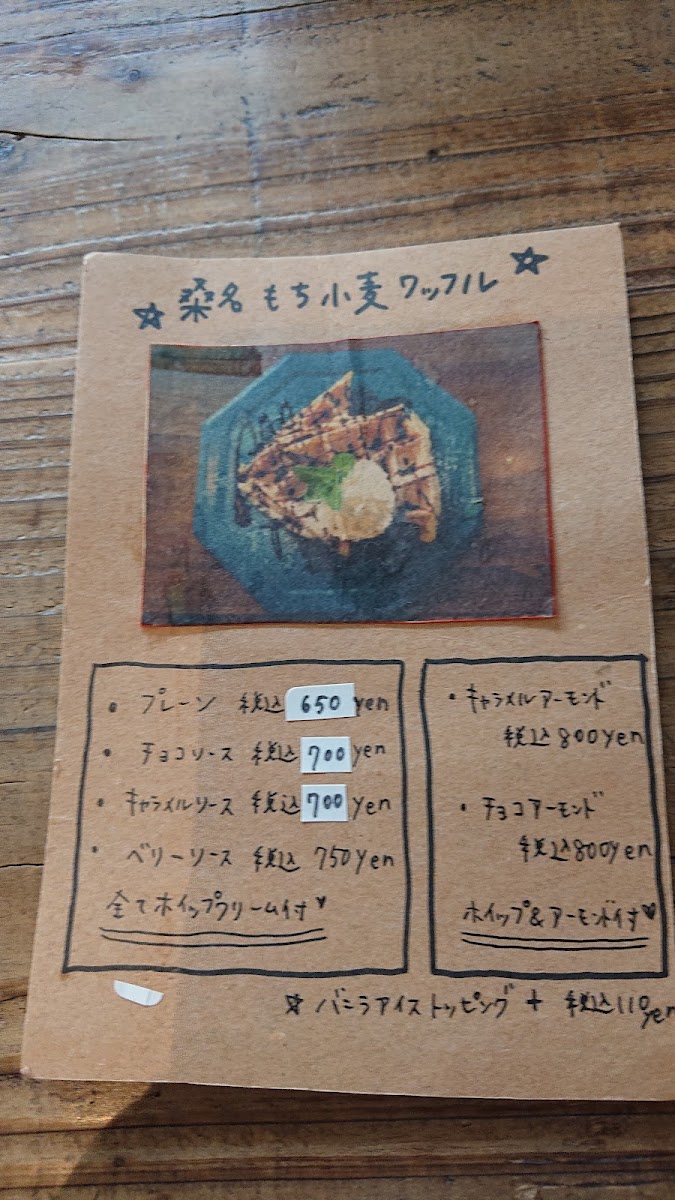 ☆ 桑名もち小麦ワッフル ☆
・ プレーン 税込 650 yen
・ チョコソース 税込 700 yen
・ キャラメルソース 税込 700 yen
・ ベリーソース 税込 750yen
全てホイップクリーム付♥
・ キャラメルアーモンド
税込800yen
・ チョコアーモンド
税込800yen
ホイップ&アーモンド付♥
☆ バニラアイストッピング + 税込110yen